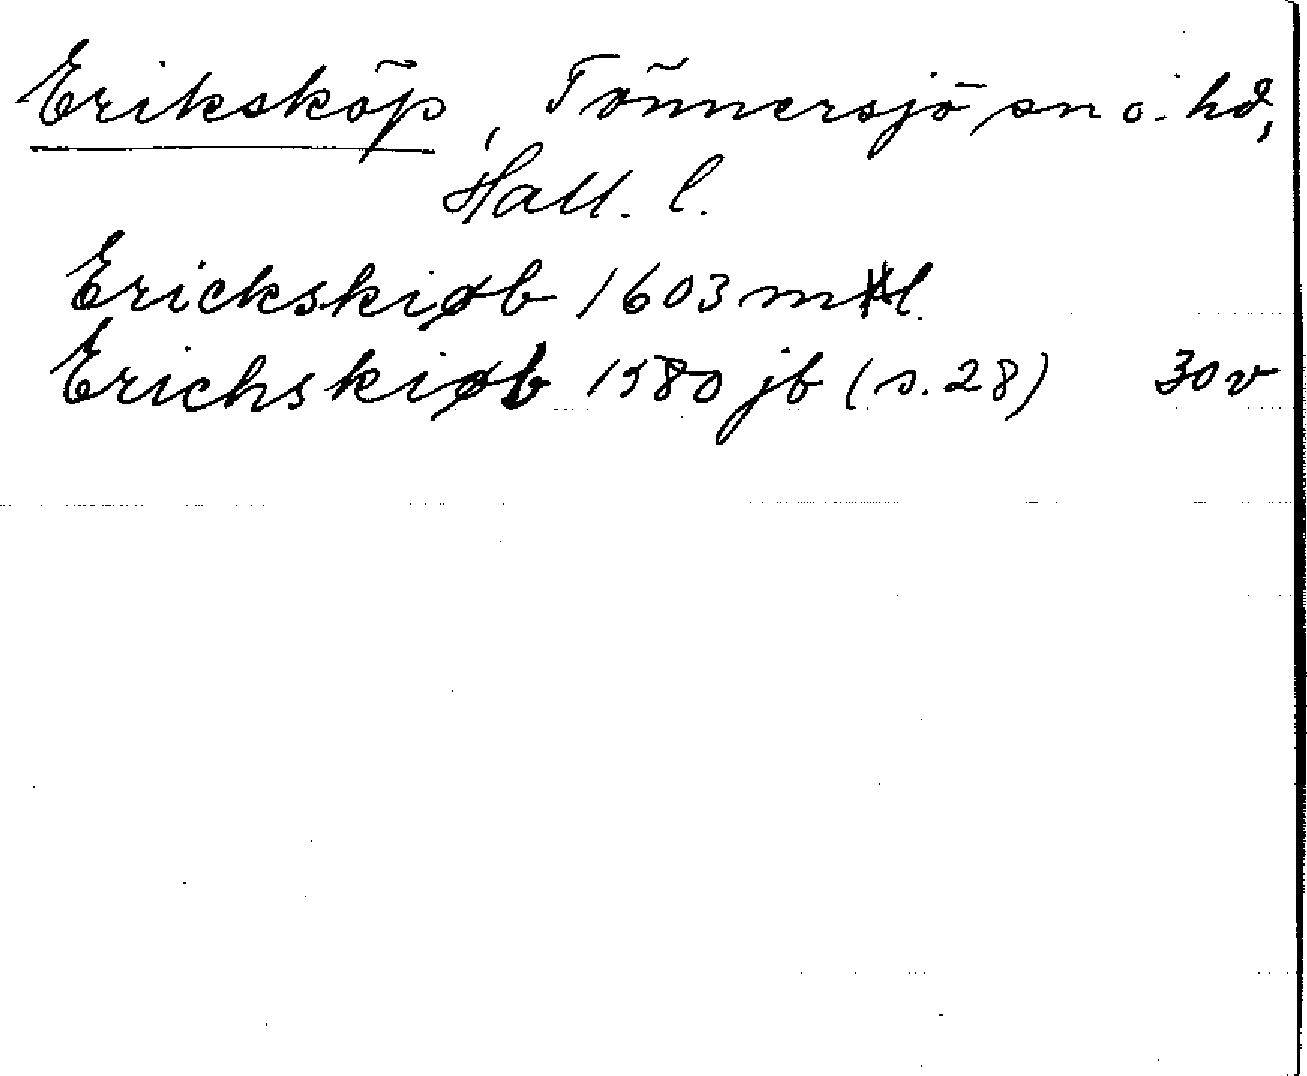 Eriksköp, Tönnersjö sn o. hd,
Hall. l.
Erickskiøb 1603 mtl.
Erichskiøb 1580 jb (s. 28) 30v